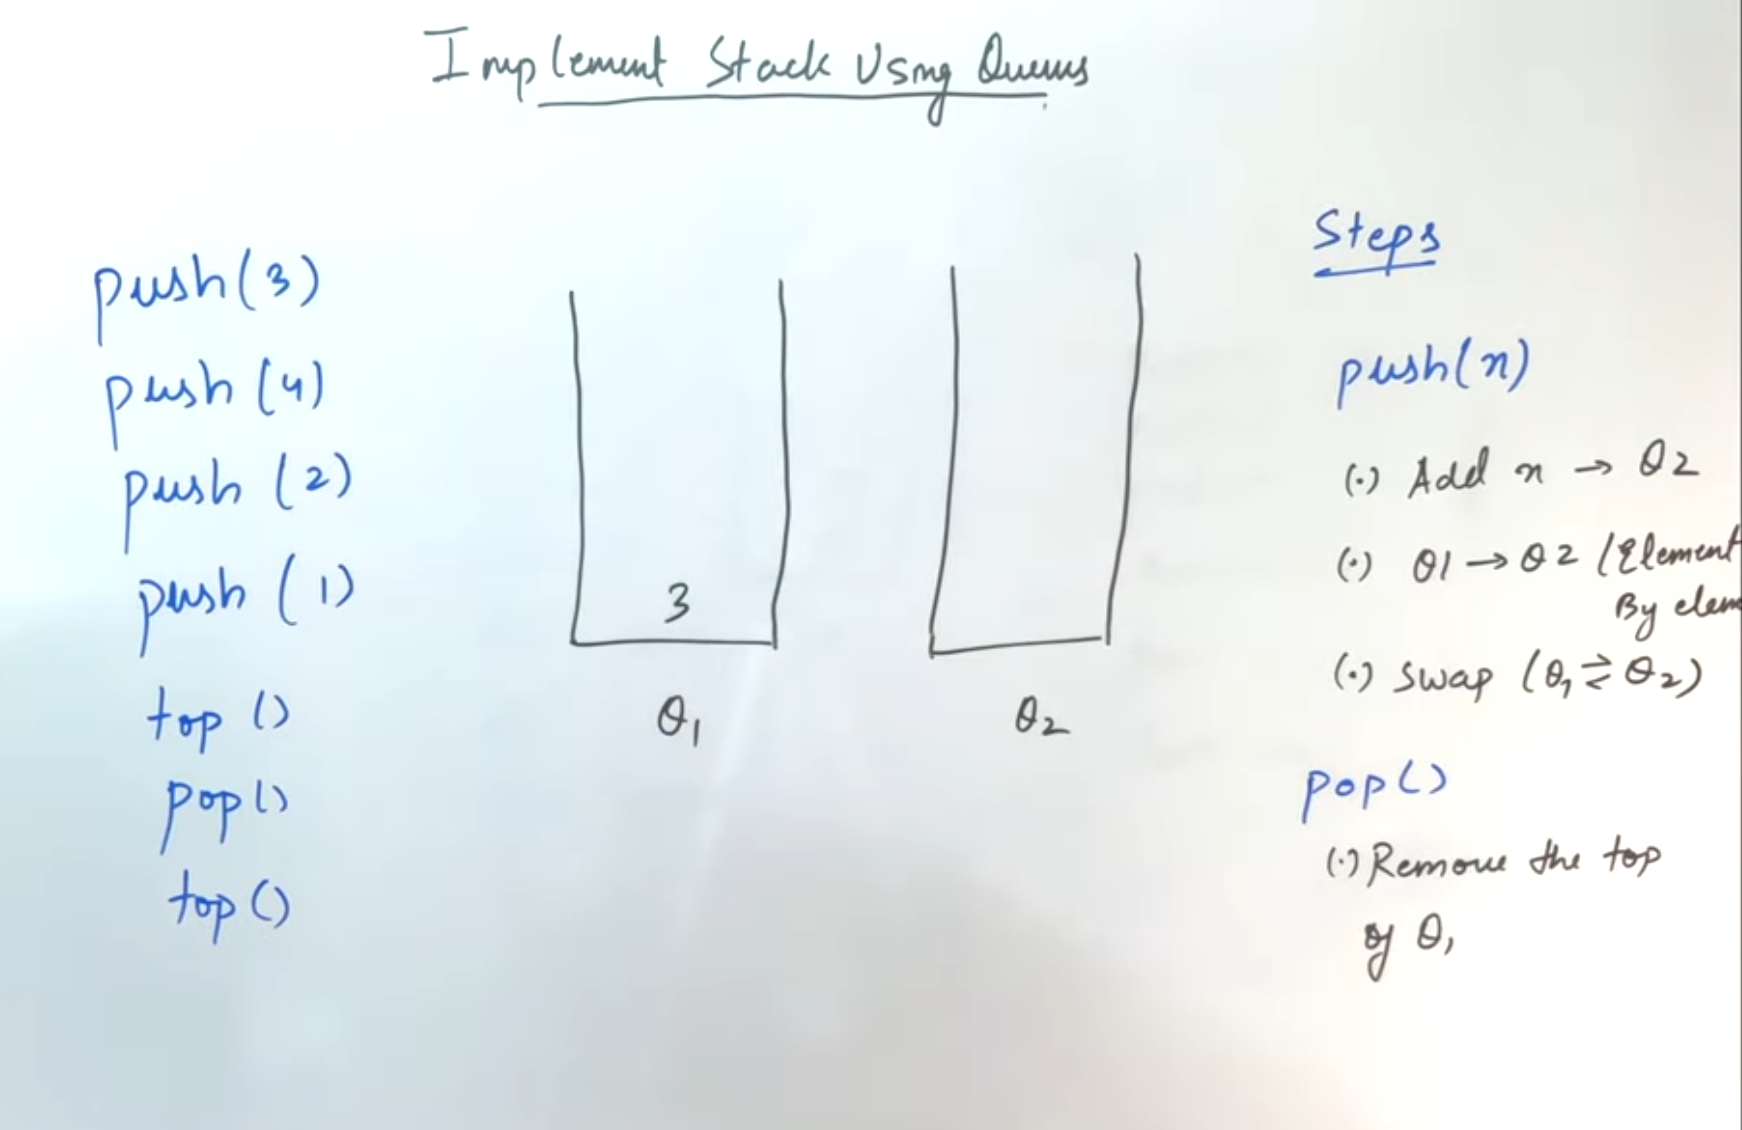 Implement Stack Using Queues
push(3)
push (4)
push (2)
push (1)
top ()
pop()
top ()
3
Q1
Q2
Steps
push(x)
(.) Add x → Q2
(.) Q1 → Q2 (Element
By elem
(.) swap (Q1 ⇄ Q2)
pop()
(.) Remove the top
of Q1